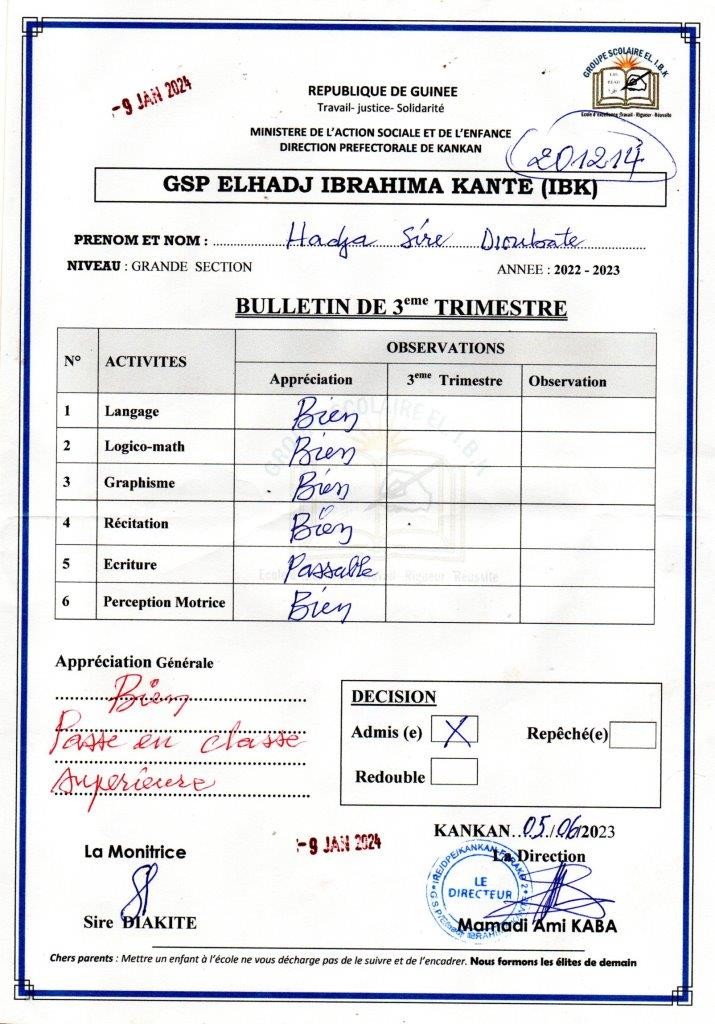 -9 JAN 2024
GROUPE SCOLAIRE EL. I.B.K
Ecole d'excellence Travail - Rigueur - Réussite
REPUBLIQUE DE GUINEE
Travail- justice- Solidarité
MINISTERE DE L'ACTION SOCIALE ET DE L'ENFANCE
DIRECTION PREFECTORALE DE KANKAN
201214
GSP ELHADJ IBRAHIMA KANTE (IBK)
PRENOM ET NOM : Hadja Sire Dioubate
NIVEAU : GRANDE SECTION ANNEE : 2022 - 2023
BULLETIN DE 3eme TRIMESTRE
N° ACTIVITES OBSERVATIONS
Appréciation 3eme Trimestre Observation
1 Langage Bien
2 Logico-math Bien
3 Graphisme Bien
4 Récitation Bien
5 Ecriture Passable
6 Perception Motrice Bien
Appréciation Générale
Bien
Passe en classe
supérieure
DECISION
Admis (e) X Repêché(e)
Redouble
KANKAN 05/06/2023
La Monitrice
-9 JAN 2024
La Direction
LE
DIRECTEUR
Sire DIAKITE
Mamadi Ami KABA
Chers parents : Mettre un enfant à l'école ne vous décharge pas de le suivre et de l'encadrer. Nous formons les élites de demain